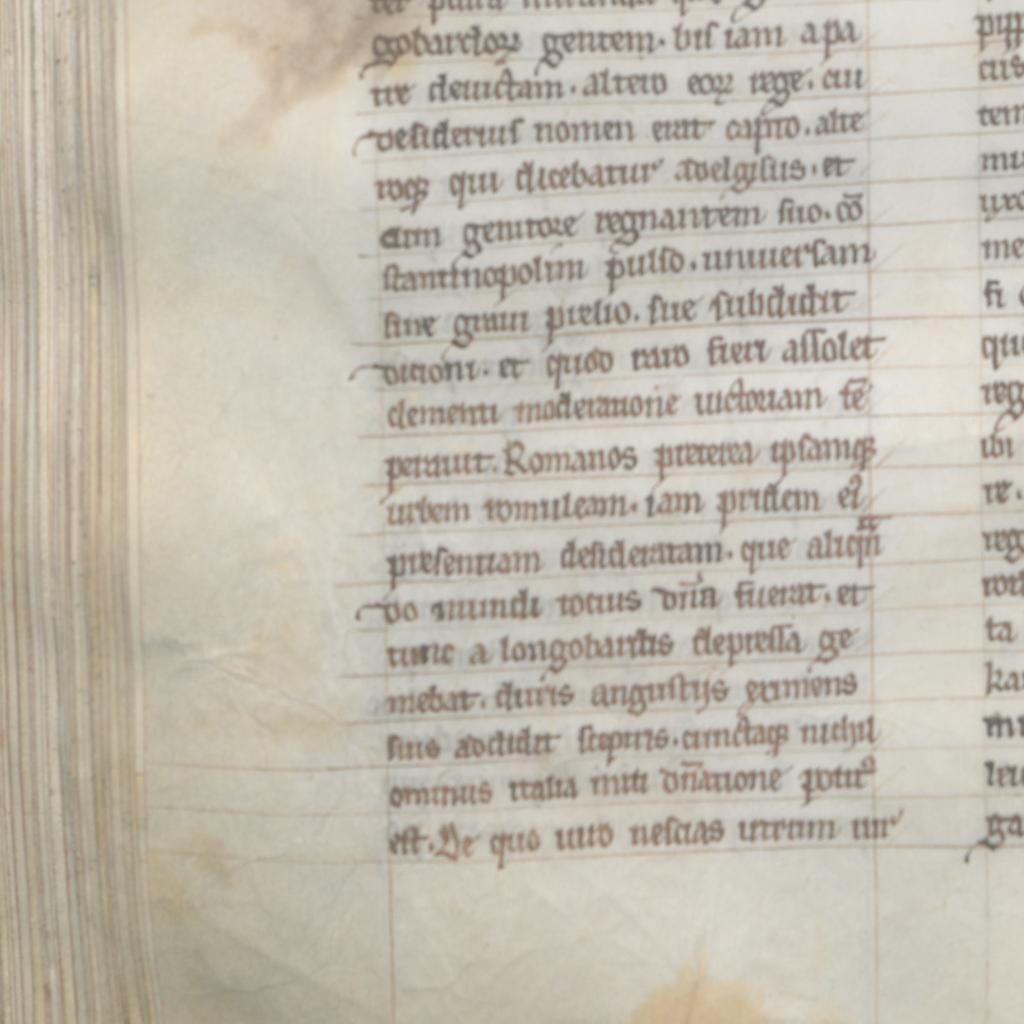 gobardoꝝ gentem. bis iam a pa
tre deuictam. altero eoꝝ rege. cui
desiderius nomen erat capto. alte
roqꝫ qui dicebatur adelgisus. et
cum genitore regnantem suo. cō
stantinopolim pulso. uniuersam
sine graui prelio. sue subdidit
dicioni. et quod raro fieri assolet
clementi moderatione uictoriam tē
perauit. Romanos preterea ipsamqꝫ
urbem romuleam. iam pridem eiꝰ
presentiam desideratam. que aliqn̄
do mundi totius dn̄a fuerat. et
tunc a longobardis depressa ge
mebat. duris angustijs eximens
suis addidit sceptris. cunctaqꝫ nichil
ominus italia miti dn̄atione potitꝰ
est. De quo uiro nescias utrum uir
pipp
cus
tem
mu
uxo
me
fi
qui
reg
ibi
re.
reg
ta
kar
ga